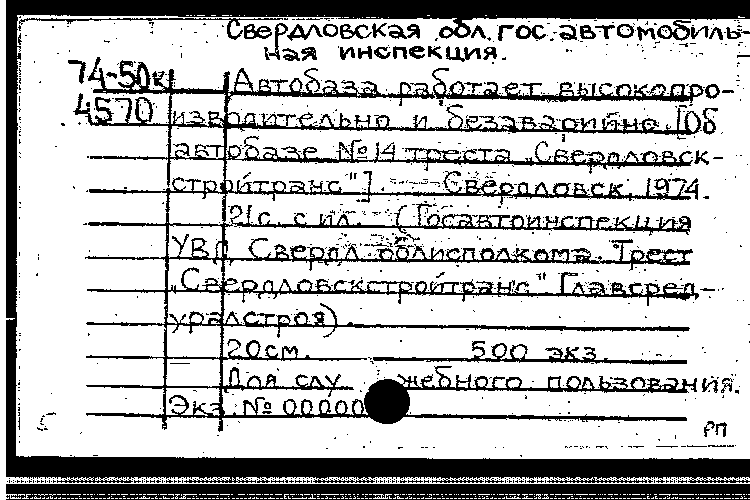 Свердловская обл. гос. автомобиль-
ная инспекция.
74-50к Автобаза работает высокопро-
4570 изводительно и безаварийно. [Об
автобазе № 14 треста „Свердловск-
стройтранс"]. Свердловск, 1974.
21с. с ил. (Госавтоинспекция
УВД Свердл. облисполкома. Трест
„Свердловскстройтранс" Главсред-
уралстроя).
20см. 500 экз.
Для слу жебного пользования.
Экз. № 00000
РП